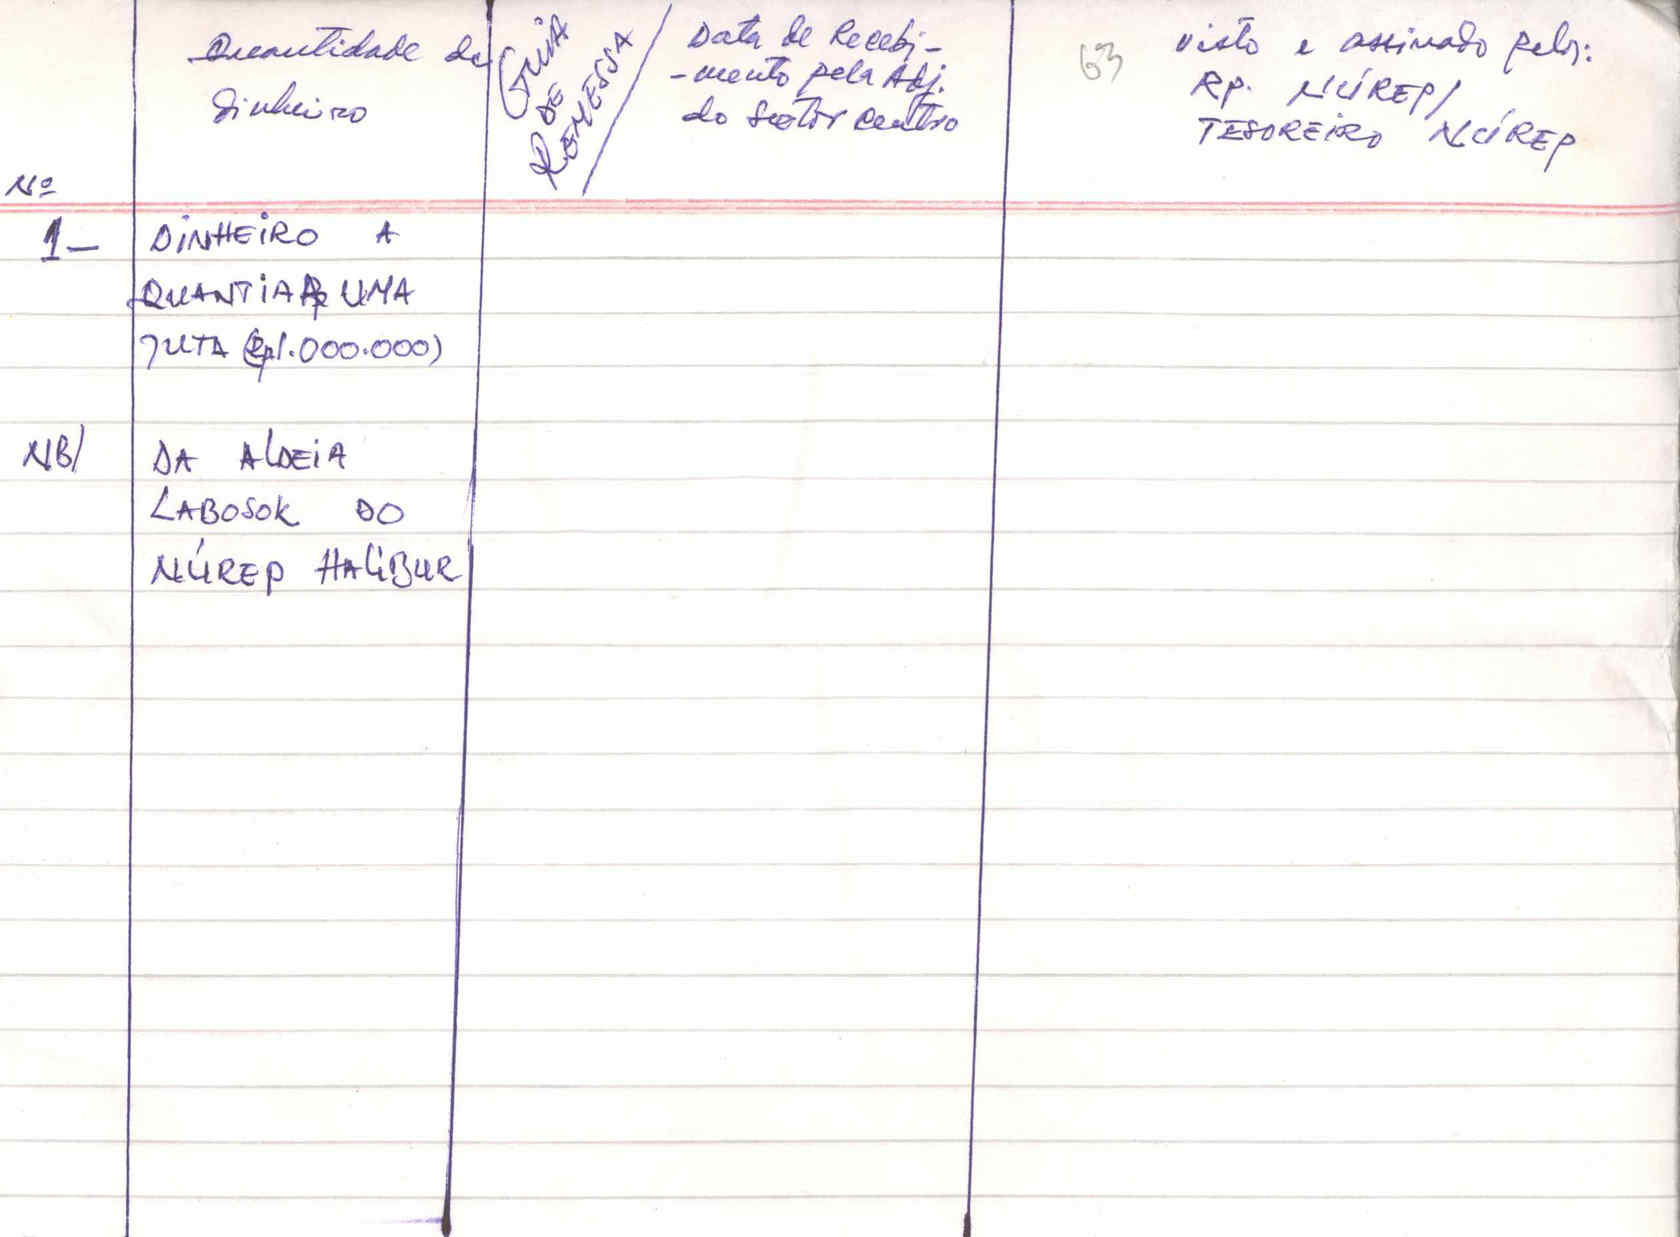 Quantidade de
dinheiro
GUIA
DE
REMESSA
Data de Recebi-
-mento pela Adj.
do Sector Centro
63
Visto e assinado pelos:
RP. NÚREP/
TESOREIRO NÚREP
Nº
1- DINHEIRO A
QUANTIA DE UMA
JUTA (Rp1.000.000)
NB/ DA ALDEIA
LABOSOK DO
NÚREP HALIBUR